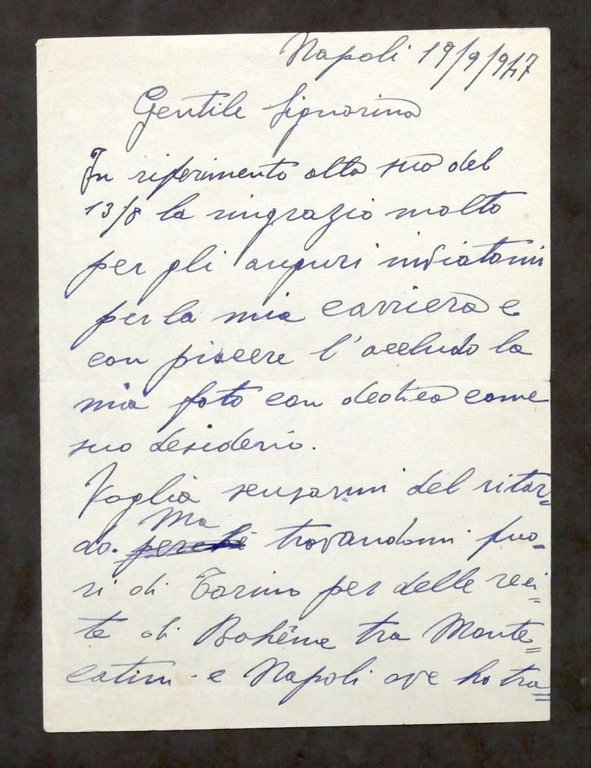 Napoli 19/9/947
Gentile Signorina
In riferimento alla sua del
13/8 la ringrazio molto
per gli auguri inviatomi
per la mia carriera e
con piacere l'accludo la
mia foto con dedica come
suo desiderio.
Voglia scusarmi del ritar=
do. perchè Ma trovandomi fuo=
ri di Torino per delle reci=
te di Bohême tra Monte=
catini - e Napoli ove ho tra=